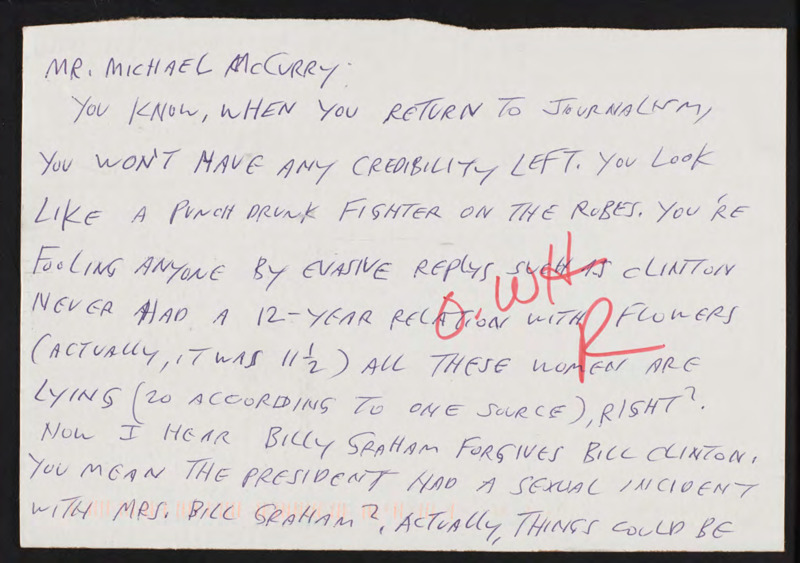 MR. MICHAEL McCURRY:
YOU KNOW, WHEN YOU RETURN TO JOURNALISM,
YOU WON'T HAVE ANY CREDIBILITY LEFT. YOU LOOK
LIKE A PUNCH DRUNK FIGHTER ON THE ROBES. YOU'RE
FOOLING ANYONE BY EVASIVE REPLYS SUCH AS CLINTON
NEVER HAD A 12-YEAR RELATION WITH FLOWERS
(ACTUALLY, IT WAS 11 1/2) ALL THESE WOMEN ARE
LYING (20 ACCORDING TO ONE SOURCE), RIGHT?.
NOW I HEAR BILLY GRAHAM FORGIVES BILL CLINTON.
YOU MEAN THE PRESIDENT HAD A SEXUAL INCIDENT
WITH MRS. BILL GRAHAM?. ACTUALLY, THINGS COULD BE
O. WH
R